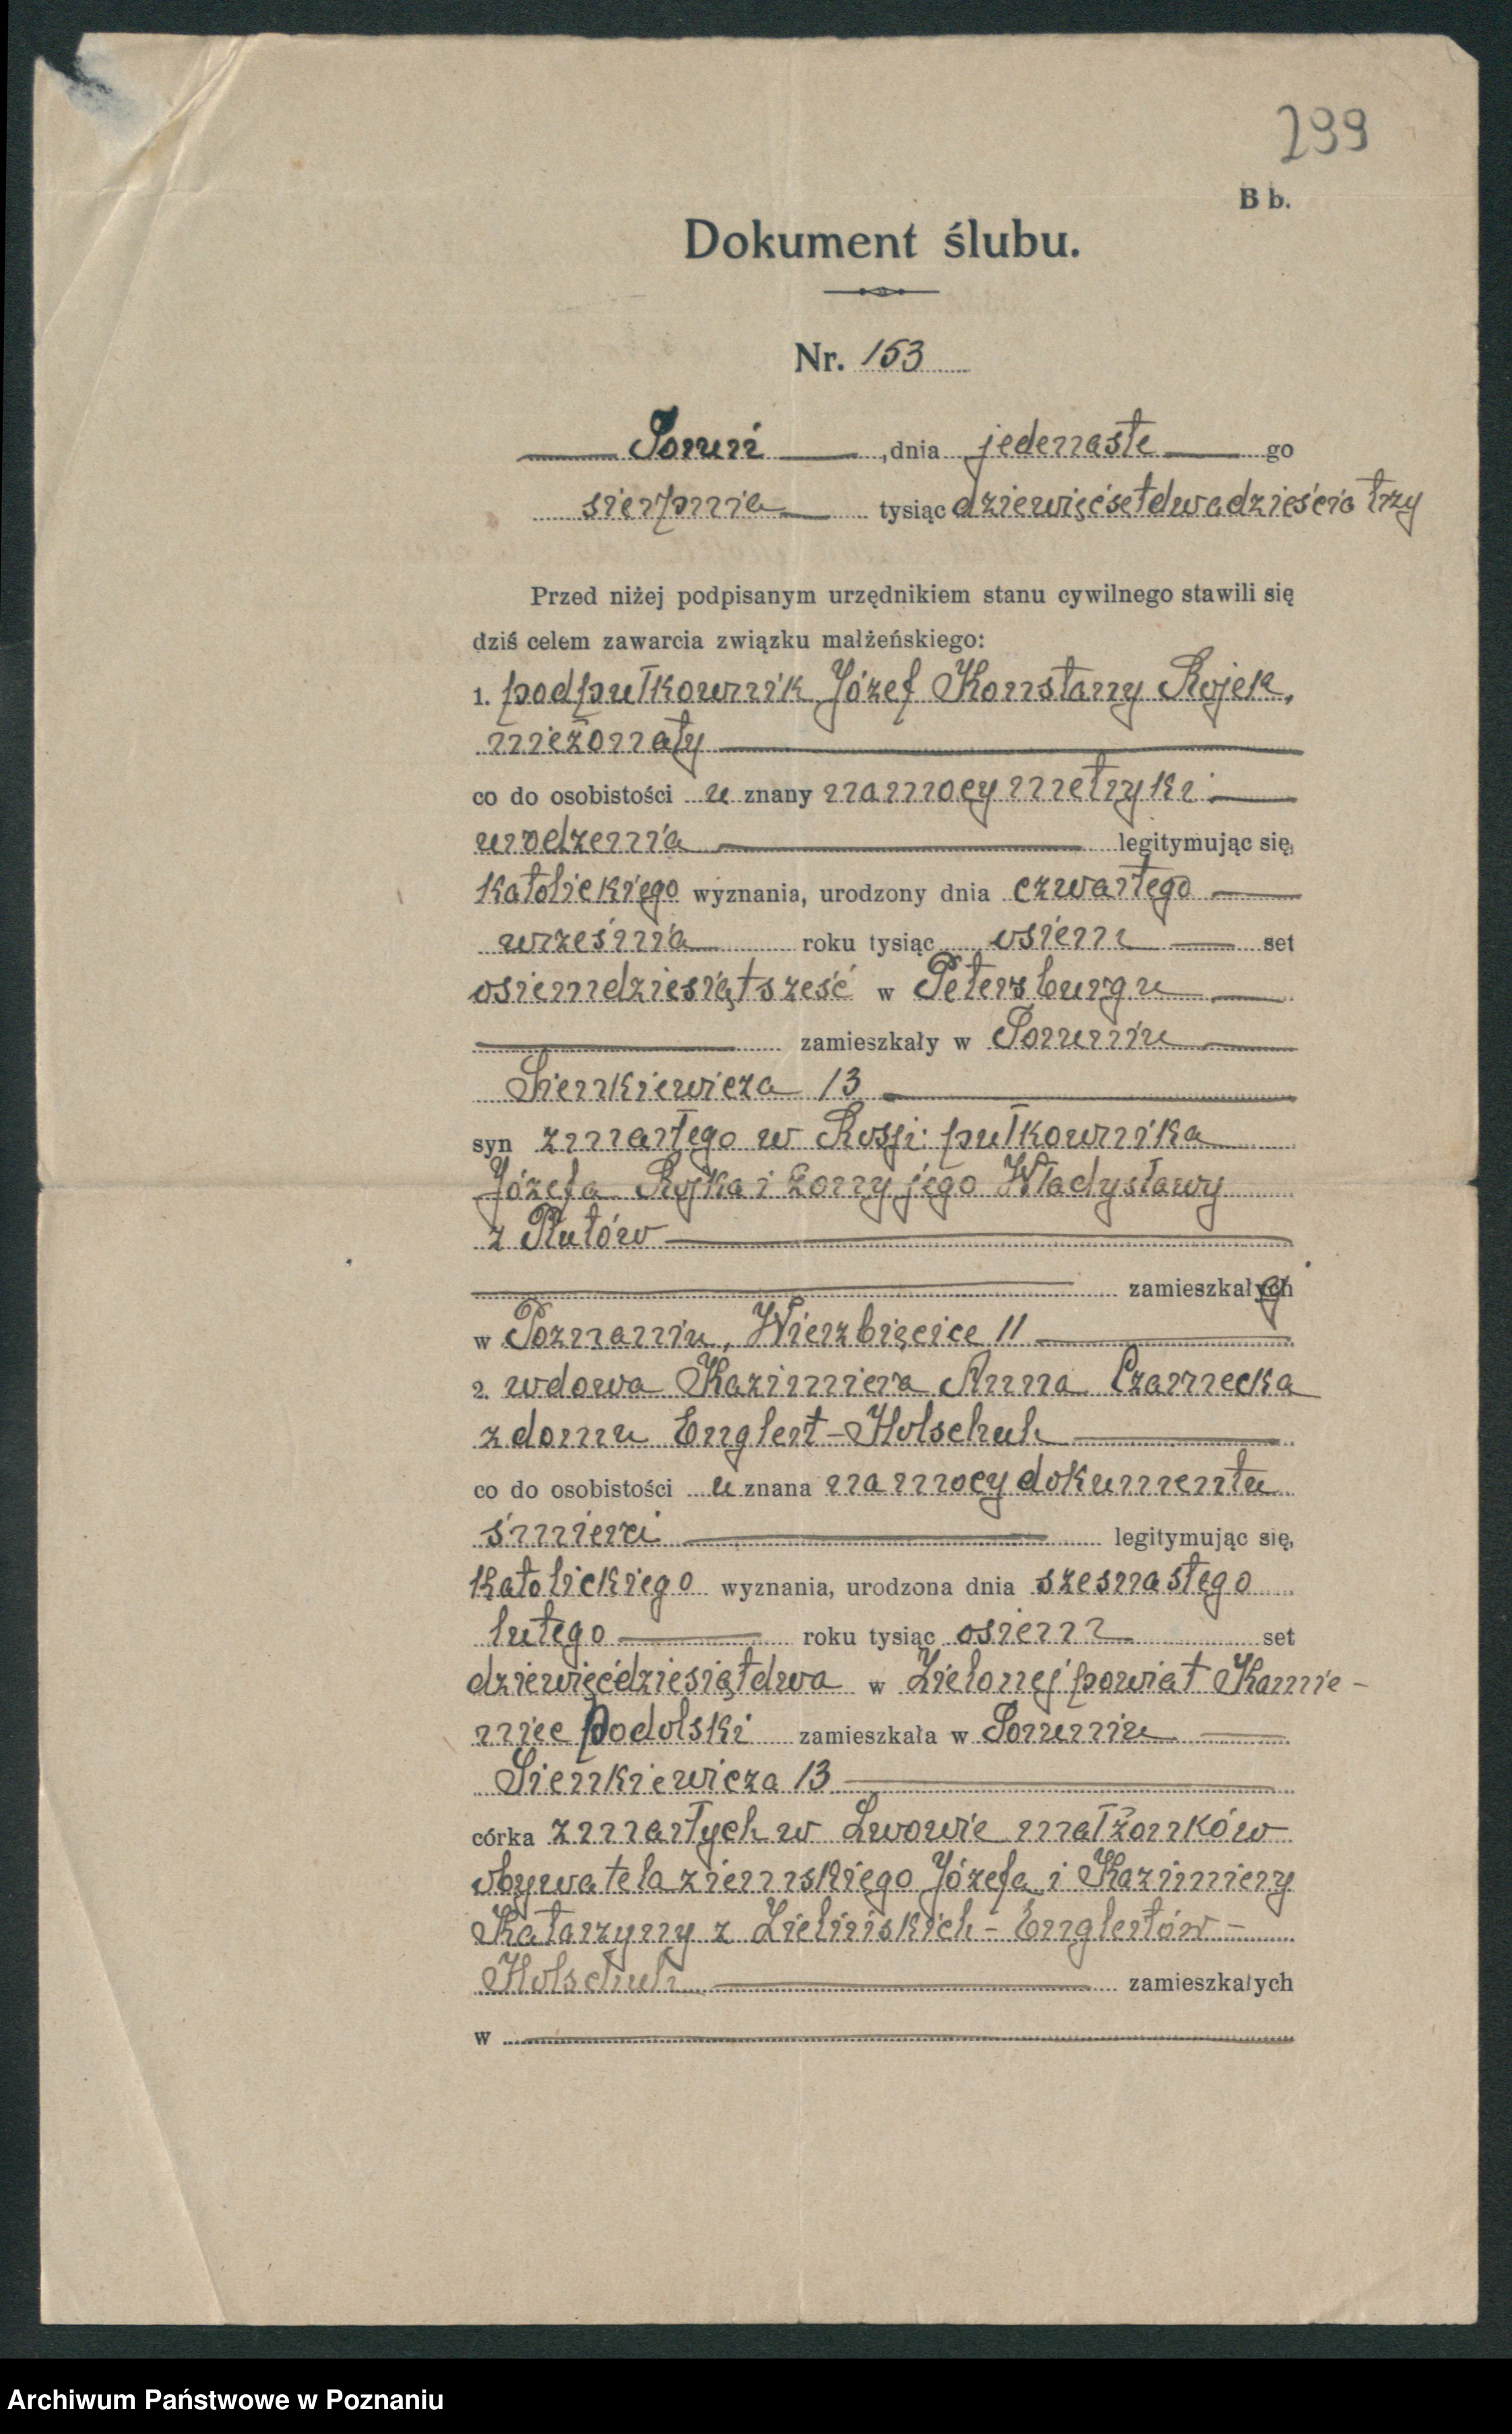 299
B b.
Dokument ślubu.
Nr. 153
Toruń, dnia jedenaste go
sierpnia tysiąc dziewięćset dwadzieścia trzy
Przed niżej podpisanym urzędnikiem stanu cywilnego stawili się
dziś celem zawarcia związku małżeńskiego:
1. podpułkownik Józef Konstanty Rojek,
nieżonaty
co do osobistości u znany na mocy metryki
urodzenia legitymując się,
katolickiego wyznania, urodzony dnia czwartego
września roku tysiąc osiem set
osiemdziesiąt sześć w Petersburgu
zamieszkały w Toruniu
Sienkiewicza 13
syn zmarłego w Rosji pułkownika
Józefa Rojka i żony jego Władysławy
z Plutów
zamieszkałej
w Poznaniu, Wierzbięcice 11
2. wdowa Kazimiera Anna Czarnecka
z domu Englert-Holschuh
co do osobistości u znana na mocy dokumentu
śmierci legitymując się,
katolickiego wyznania, urodzona dnia szesnastego
lutego roku tysiąc osiem set
dziewięćdziesiąt dwa w Zielonej powiat Kamie-
niec podolski zamieszkała w Toruniu
Sienkiewicza 13
córka zmarłych w Lwowie małżonków
obywatela ziemskiego Józefa i Kazimiery
Katarzyny z Zielińskich - Englertów -
Holschuh zamieszkałych
w
Archiwum Państwowe w Poznaniu